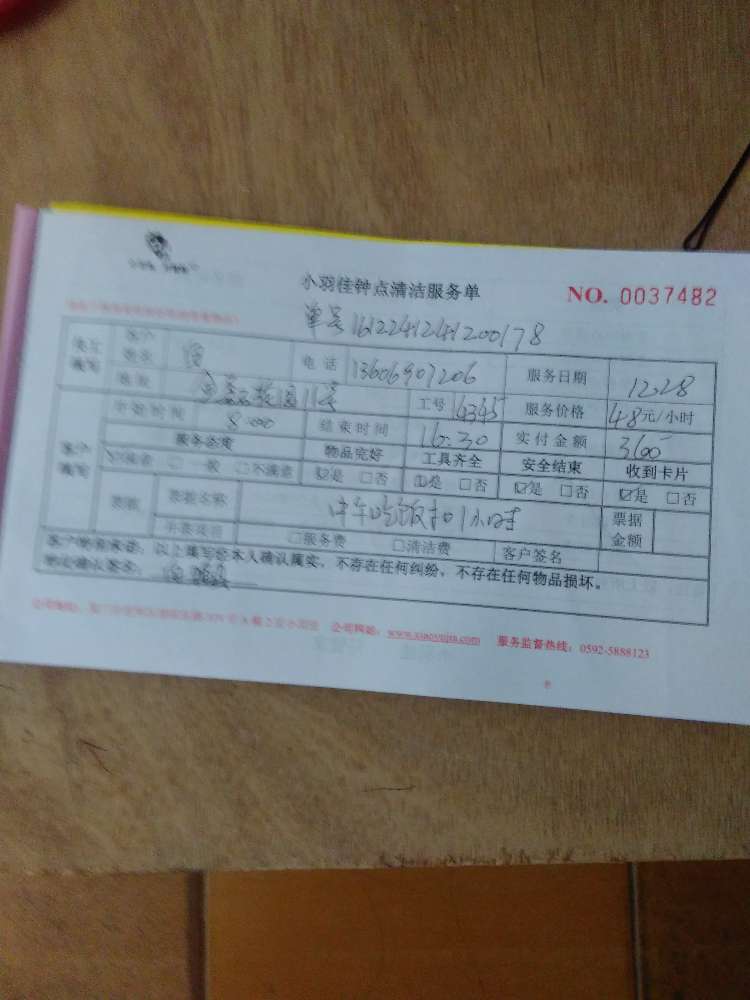 小羽佳钟点清洁服务单
NO. 0037482
单号1612241241200178
员工填写 客户姓名 电话 13606907206 服务日期 12.28
地址 11号 工号 4345 服务价格 48元/小时
客户填写 开始时间 8:00 结束时间 16:30 实付金额 360
服务态度 物品完好 工具齐全 安全结束 收到卡片
☑满意 □一般 □不满意 ☑是 □否 ☑是 □否 ☑是 □否 ☑是 □否
票据 票据名称 中午吃饭扣1小时 票据金额
开票项目 □服务费 □清洁费 客户签名
以上填写经本人确认属实，不存在任何纠纷，不存在任何物品损坏。
公司网站：www.xiaoyujia.com 服务监督热线：0592-5888123